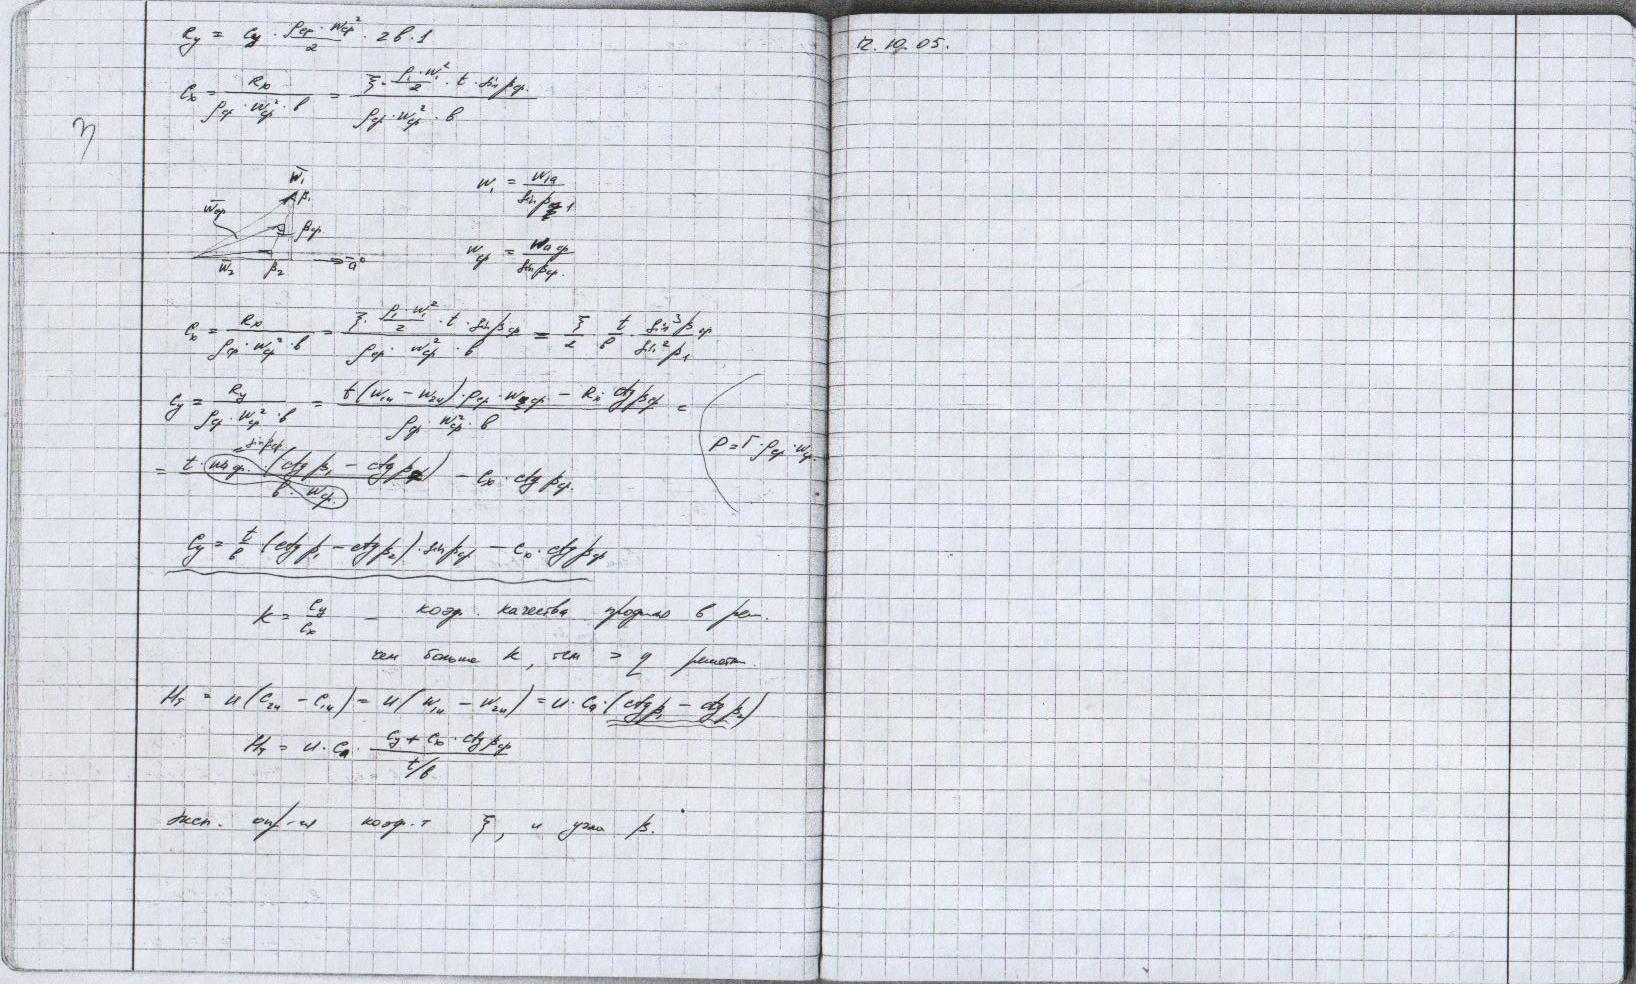 R_y = C_y · ρ_ср · w_ср² / 2 · 2в · 1
C_x = R_x / (ρ_ср · w_ср² · в) = (ξ · ρ₁ · w₁² / 2 · t · sin β_ср) / (ρ_ср · w_ср² · в)
w̄₁
β₁
w₁ = w₁ₐ / sin β₁
w̄_ср
β_ср
w̄₂ β₂ ā°
w_ср = w_a ср / sin β_ср.
C_x = R_x / (ρ_ср · w_ср² · в) = (ξ · ρ₁ · w₁² / 2 · t · sin β_ср) / (ρ_ср · w_ср² · в) = ξ / 2 · t / в · sin³ β_ср / sin² β₁
C_y = R_y / (ρ_ср · w_ср² · в) = (t (w₁ᵤ − w₂ᵤ) · ρ_ср · w_a ср − R_x · ctg β_ср) / (ρ_ср · w_ср² · в) =
P = Г · ρ_ср · w_ср.
sin β_ср
= t · w_a ср. · (ctg β₁ − ctg β₂) / (в · w_ср.) − C_x · ctg β_ср.
C_y = t / в · (ctg β₁ − ctg β₂) · sin β_ср − C_x · ctg β_ср
K = C_y / C_x − коэф. качества профиля в реш.
чем больше K, тем > η решетки.
H_т = u (C₂ᵤ − C₁ᵤ) = u (w₁ᵤ − w₂ᵤ) = u · Cₐ · (ctg β₁ − ctg β₂)
H_т = u · Cₐ · (C_y + C_x · ctg β_ср) / (t/в)
Эксп. опр-я коэф.т ξ, и угла β.
12.10.05.